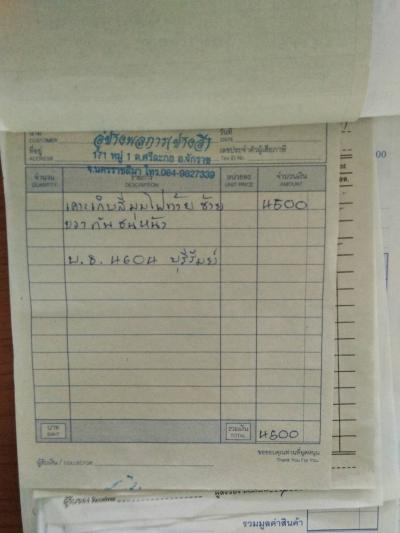 วันที่
CUSTOMER
DATE
ที่อยู่
ADDRESS
อู่ช่างพลการ(ช่างสี)
เลขประจำตัวผู้เสียภาษี
Tax ID No.
171 หมู่ 1 ต.ศรีละกอ อ.จักราช
จ.นครราชสีมา โทร.084-9827339
จำนวน
QUANTITY
รายการ
DESCRIPTION
หน่วยละ
UNIT PRICE
จำนวนเงิน
AMOUNT
เคาะเก็บสีมุมไฟท้าย ซ้าย 4500
ขวา กันชนหน้า
บ.ธ. 4604 บุรีรัมย์
บาท
BAHT
รวมเงิน
TOTAL
4500
ผู้รับเงิน / COLLECTOR
ขอขอบคุณท่านที่อุดหนุน
Thank You For You
00
รวมมูลค่าสินค้า